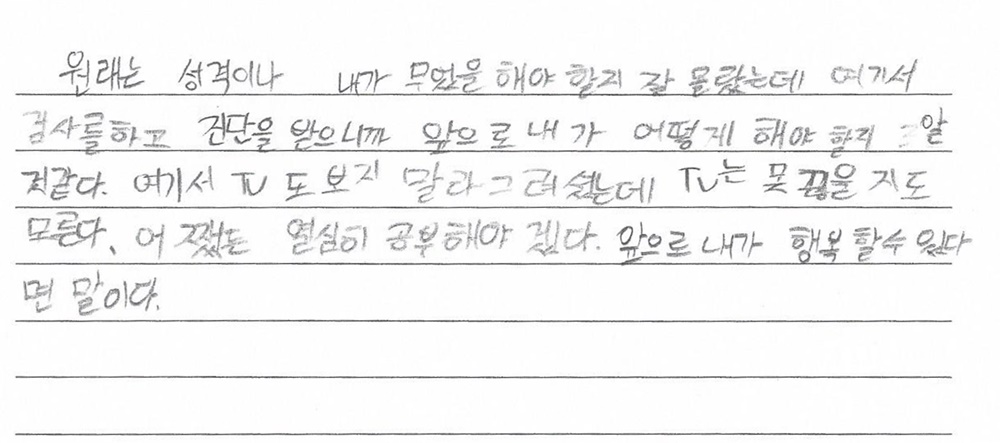 원래는 성격이나 내가 무엇을 해야 할지 잘 몰랐는데 여기서
검사를하고 진단을 받으니까 앞으로 내가 어떻게 해야 할지 알
거같다. 여기서 TV도 보지 말라그러셨는데 TV는 못 끊을 지도
모른다, 어쨌든 열심히 공부해야 겠다. 앞으로 내가 행복 할수 있다
면 말이다.